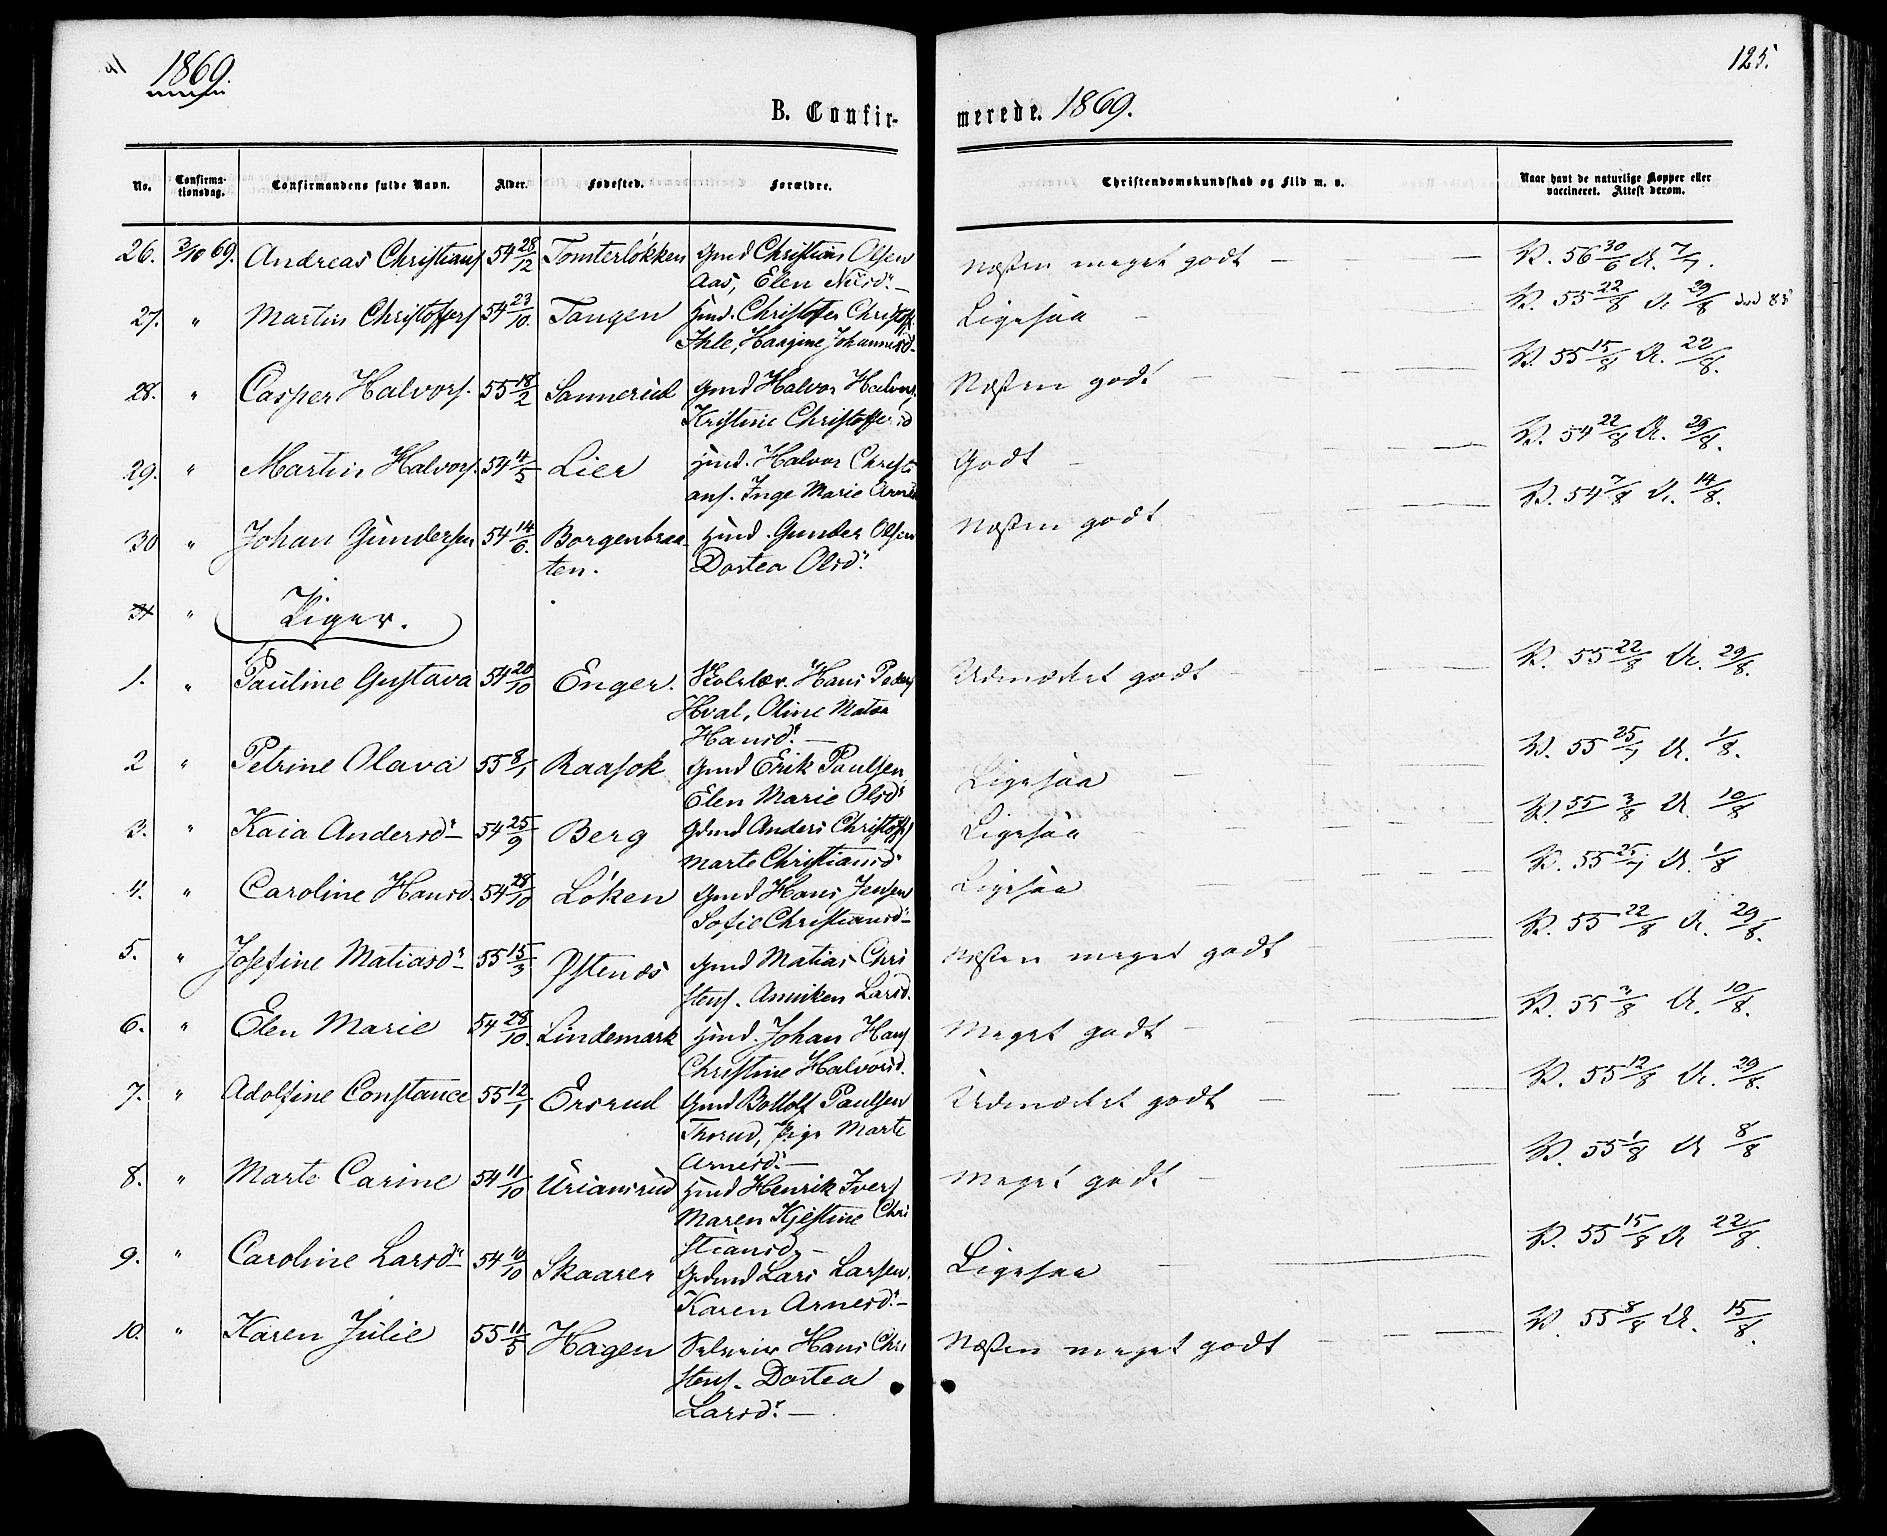 1869.
125.
B. Confir-
merede. 1869.
No.
Confirma-
tionsdag.
Confirmandens fulde Navn.
Alder.
Fødested.
Forældre.
Christendomskundskab og Flid m. v.
Naar havt de naturlige Kopper eller
vaccineret. Attest derom.
26. 3/10 69. Andreas Christians 54 28/12 Tomterløkken Gmd Christian Olsen
Aas, Elen Nilsd.
Næsten meget godt
V. 56 30/6 A. 7/7.
27. " Martin Christoffers 54 23/10. Tangen Hmd. Christoffer Christoff.
Ihle, Haagine Johannesd.
Ligesaa
V. 55 22/8 A 29/8
28. " Casper Halvors. 55 18/2 Sannerud Gmd Halvor Halvors
Kristine Christoffersd
Næsten godt
V. 55 15/8 A. 22/8.
29. " Martin Halvors. 54 4/5 Lier Hmd. Halvor Christi
ans. Inge Marie Arnes
Godt
V. 54 22/8 A. 29/8.
30 " Johan Gundersen 54 14/6. Borgenbraa-
ten. Hmd. Gunder Olsen
Dortea Olsd.
Næsten godt
V. 54 7/8 A. 14/8.
31 " Piger.
1. " Pauline Gustava 54 20/10 Enger. Skolelær. Hans Peders
Hval, Oline Matea
Hansd.
Udmærket godt
V. 55 22/8 A. 29/8.
2 " Petrine Olava 55 8/1 Raasok Gmd Erik Paulsen,
Elen Marie Olsd
Ligesaa
V. 55 25/7 A. 1/8.
3. " Kaia Andersd 54 25/9 Berg Gdmd Anders Christoffs
Marte Christiansd
Ligesaa
V. 55 3/8 A. 10/8
4. " Caroline Hansd. 54 28/10 Løken Gmd Hans Jensen
Sofie Christiansd
Ligesaa
V. 55 25/7 A. 1/8
5. " Josefine Matiasd 55 15/3 Østenæs Gmd Matias Chri
stens. Anniken Larsd.
Næsten meget godt
V. 55 22/8 A. 29/8.
6. " Elen Marie 54 28/10. Lindemark Hmd. Johan Hans
Christine Halvorsd.
Meget godt
V. 55 3/8 A. 10/8.
7. " Adolfine Constance 55 12/1 Ersrud Gmd Bottolf Paulsen
Thorud, Pige Marte
Arnesd.
Udmærket godt
V. 55 12/8 A. 29/8.
8. " Marte Carine 54 11/10 Uriansrud Hmd Henrik Ivers
Maren Kjestine Chri
stiansd.
Meget godt
V. 55 1/8 A 8/8
9. " Caroline Larsd 54 10/10 Skaarer Gdmd Lars Larsen,
Karen Arnesd.
Ligesaa
V. 55 15/8 A 22/8.
10. " Karen Julie 55 11/5 Hagen Selveier Hans Chri
stens. Dortea
Larsd.
Næsten meget godt
V. 55 8/8 A. 15/8.